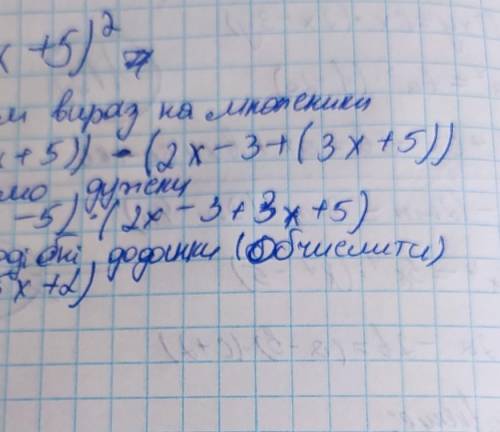 x+5)² =
м вираз на множники
x+5)) · (2x-3+(3x+5))
мо дужки
-5) · (2x-3+3x+5)
одібні доданки (обчислити)
x+2)